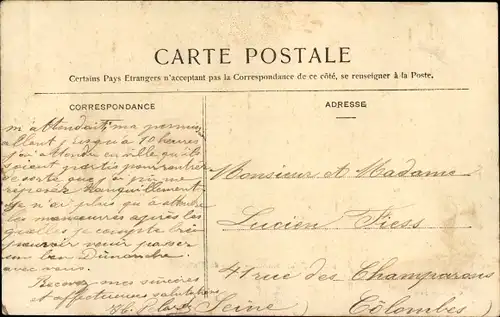 CARTE POSTALE
Certains Pays Etrangers n'acceptent pas la Correspondance de ce côté, se renseigner à la Poste.
CORRESPONDANCE
m'attendait, ma
allant jusqu'à 10 heures
j'ai attendu
partis pour rentrer
de sorte que j'ai pu me
reposer tranquillement
je n'ai plus qu'à attendre
les manœuvres après les
quelles je compte bien
pouvoir venir passer
un bon Dimanche
avec vous.
Recevez mes sincères
et affectueuses salutations
ADRESSE
Monsieur et Madame
Lucien Fiess
41 rue des Champarons
Côlombes
Seine